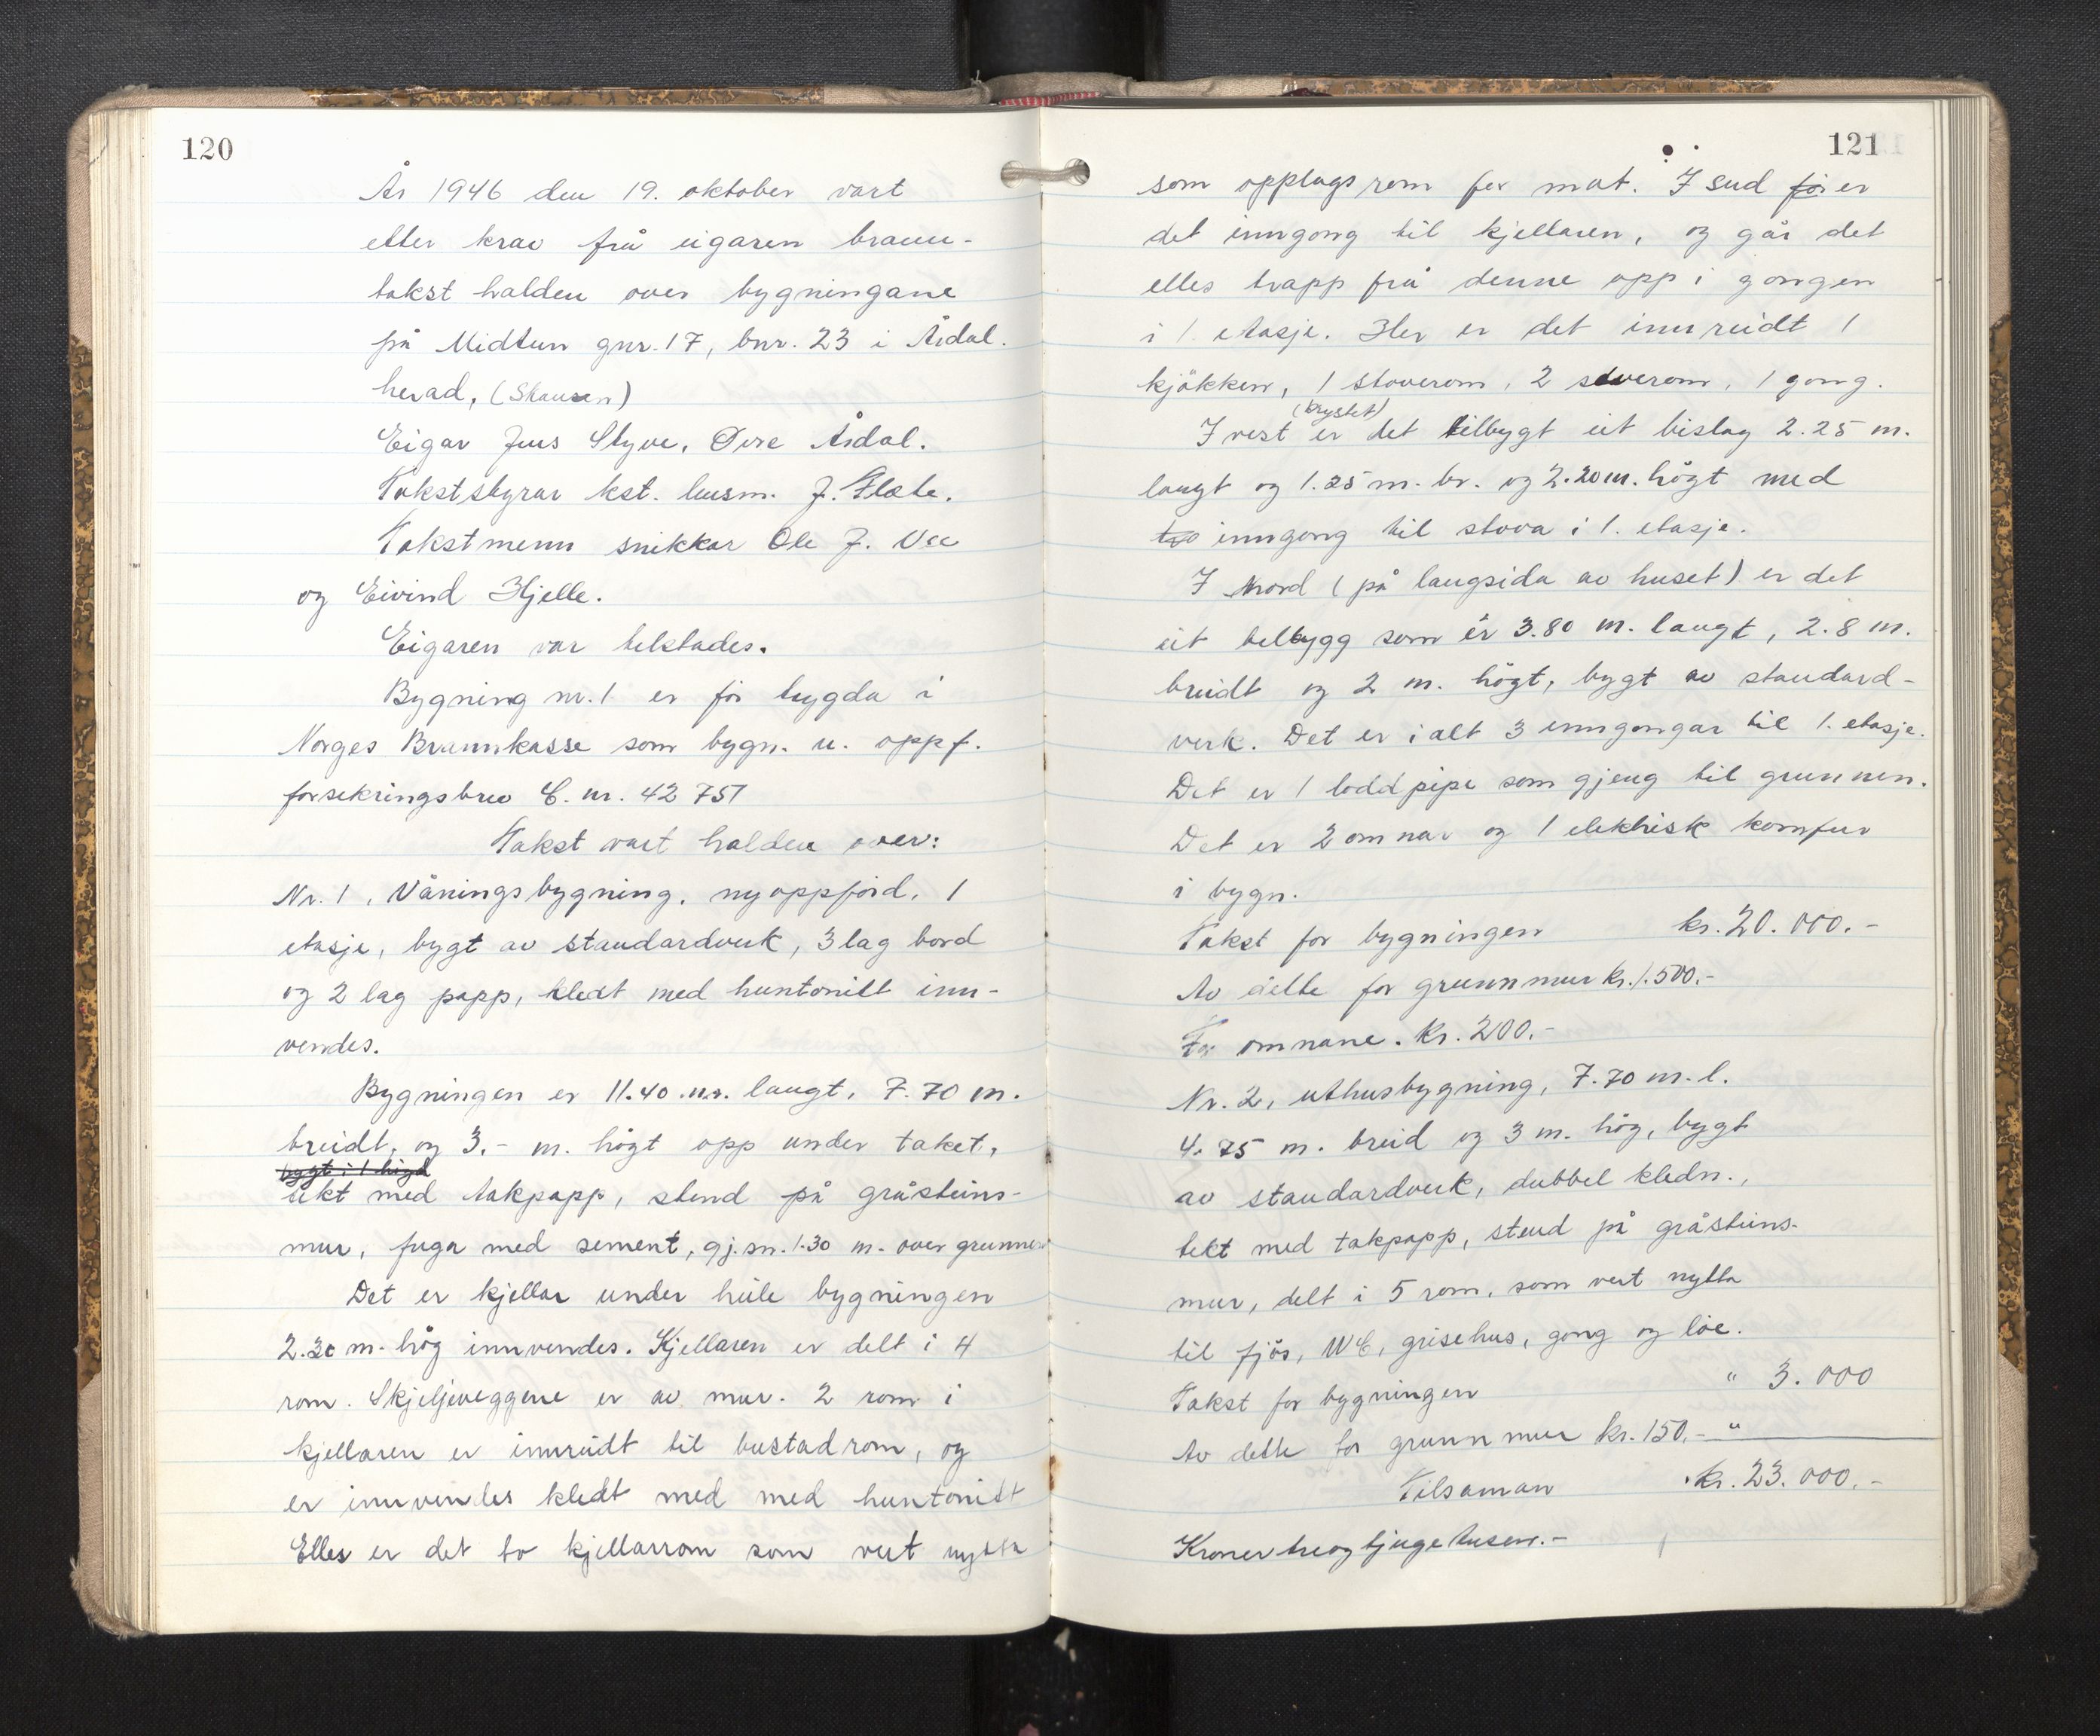 120
År 1946 den 19. oktober vart
etter krav frå eigaren brann-
takst halden over bygningane
på Midtun gnr. 17, bnr. 23 i Årdal
herad, (Skausen)
Eigar Jens Styve, Øvre Årdal.
Takststyrar kst. lensm. J. Flæte.
Takstmenn snikkar Ole J. Vee
og Eivind Hjelle.
Eigaren var tilstades.
Bygning nr. 1 er før trygda i
Norges Brannkasse som bygn. u. oppf.
forsikringsbrev C. nr. 42 751
Takst vart halden over:
Nr. 1, Våningsbygning, nyoppførd, 1
etasje, bygt av standardverk, 3 lag bord
og 2 lag papp, kledt med huntonitt inn-
vendes.
Bygningen er 11.40 m. langt, 7.70 m.
breidt, og 3.- m. högt opp under taket,
bygt i 1 högd
tekt med takpapp, stend på gråsteins-
mur, fuga med sement, gj.sn. 1.30 m. over grunnen
Det er kjellar under heile bygningen
2.30 m. høg innvendes. Kjellaren er delt i 4
rom. Skjeljeveggene er av mur. 2 rom i
kjellaren er innreidt til bustadrom, og
er innvendes kledt med med huntonitt
Elles er det to kjellarrom som vert nytta
121
som opplagsrom for mat. I sud før er
det inngong til kjellaren, og går det
elles trapp frå denne opp i gongen
i 1. etasje. Her er det innreidt 1
kjökken, 1 stoverom, 2 soverom, 1 gong.
(brystet)
I vest er det tilbygt eit bislag 2.25 m.
langt og 1.25 m. br. og 2.20 m. högt med
to inngong til stova i 1. etasje.
I Nord (på langsida av huset) er det
eit tilbygg som er 3.80 m. langt, 2.8 m.
breidt og 2 m. högt, bygt av standard-
verk. Det er i alt 3 inngongar til 1. etasje.
Det er 1 loddpipe som gjeng til grunnen.
Det er 2 omnar og 1 elektrisk komfur
i bygn.
Takst for bygningen kr. 20.000.-
Av dette for grunnmur kr. 1.500.-
For omnane. kr. 200.-
Nr. 2, uthusbygning, 7.70 m. l.
4.75 m. breid og 3 m. hög, bygt
av standardverk, dubbel kledn.,
tekt med takpapp, stend på gråsteins-
mur, delt i 5 rom, som vert nytta
til fjös, WC, grisehus, gong og löe.
Takst for bygningen " 3.000
Av dette for grunnmur kr. 150.- "
Tilsaman kr. 23.000.-
Kroner treogtjugetusen.-